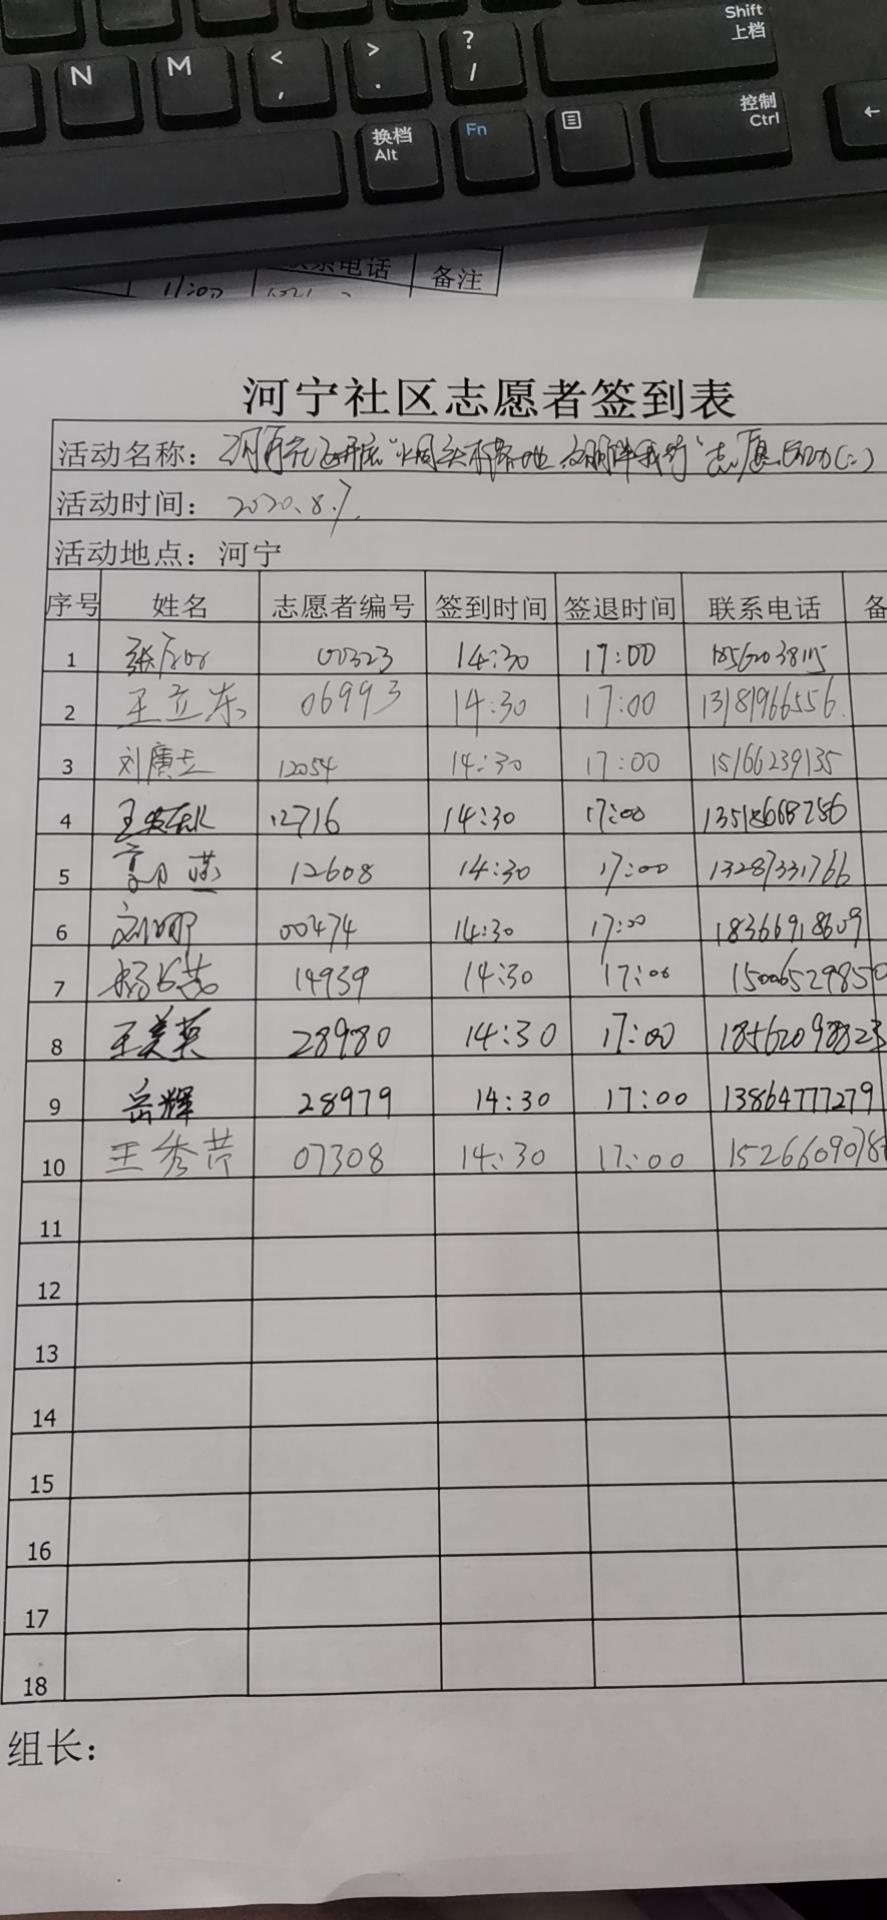 Shift
上档
N M < ,
> .
? /
换档
Alt
Fn
控制
Ctrl
←
联系电话 备注
11:00
河宁社区志愿者签到表
活动名称：河宁社区开展“烟头不落地 文明伴我行”志愿活动(二)
活动时间：2020.8.7
活动地点：河宁
序号 姓名 志愿者编号 签到时间 签退时间 联系电话 备
1 00323 14:30 17:00
2 王立东 06993 14:30 17:00 13181966556
3 刘广 12054 14:30 17:00 15166239135
4 王 12716 14:30 17:00 13518668756
5 燕 12608 14:30 17:00 13287331766
6 刘娜 00474 14:30 17:00 18366918609
7 杨 14939 14:30 17:00 15006529850
8 王美英 28980 14:30 17:00 18562098823
9 岳辉 28979 14:30 17:00 13864777279
10 王秀芹 07308 14:30 17:00 1526609078
11
12
13
14
15
16
17
18
组长：